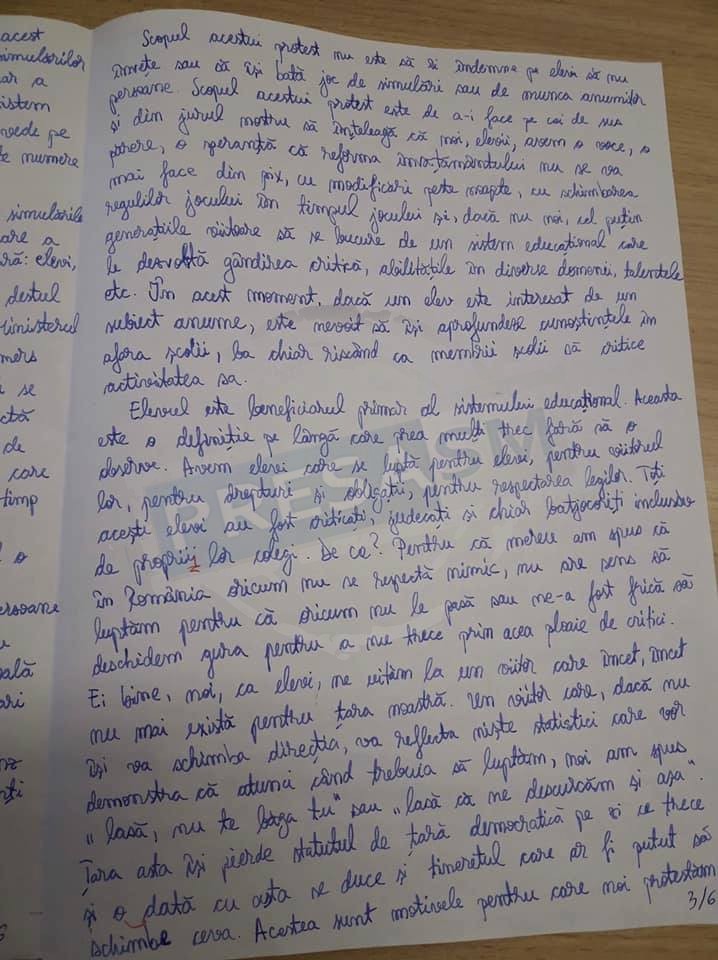 acest
simulărilor
ar a
istem
vede pe
te numere
simulările
are a
ră: elevi,
destul
Ministerul
mers
a se
ctă
de
care
timp
l o
ersoane
u
oală
ări
nz
nți
Scopul acestui protest nu este să îi îndemne pe elevi să nu
învețe sau că își bată joc de simulări sau de munca anumitor
persoane. Scopul acestui protest este de a-i face pe cei de sus
și din jurul nostru să înțeleagă că noi, elevii, avem o voce, o
părere, o speranță că reforma învățământului nu se va
mai face din pix, cu modificări peste noapte, cu schimbarea
regulilor jocului în timpul jocului și, dacă nu noi, cel puțin
generațiile viitoare să se bucure de un sistem educațional care
le dezvoltă gândirea critică, abilitățile în diverse domenii, talentele
etc. În acest moment, dacă un elev este interesat de un
subiect anume, este nevoit să își aprofundeze cunoștințele în
afara școlii, ba chiar riscând ca membrii școlii să critice
activitatea sa.
Elevul este beneficiarul primar al sistemului educațional. Aceasta
este o definiție pe lângă care prea mulți trec fără să o
observe. Avem elevi care se luptă pentru elevi, pentru viitorul
lor, pentru drepturi și obligații, pentru respectarea legilor. Toți
acești elevi au fost criticați, judecați și chiar batjocoriți inclusiv
de proprii lor colegi. De ce? Pentru că mereu am spus că
în România oricum nu se respectă nimic, nu are sens să
luptăm pentru că oricum nu le pasă sau ne-a fost frică să
deschidem gura pentru a nu trece prin acea ploaie de critici.
Ei bine, noi, ca elevi, ne uităm la un viitor care încet, încet
nu mai există pentru țara noastră. Un viitor care, dacă nu
își va schimba direcția, va reflecta niște statistici care vor
demonstra că atunci când trebuia să luptăm, noi am spus
„lasă, nu te băga tu" sau „lasă că ne descurcăm și așa".
Țara asta își pierde statutul de țară democratică pe zi ce trece
și o dată cu asta se duce și tineretul care ar fi putut să
schimbe ceva. Acestea sunt motivele pentru care noi protestăm
3/6
PRESASM